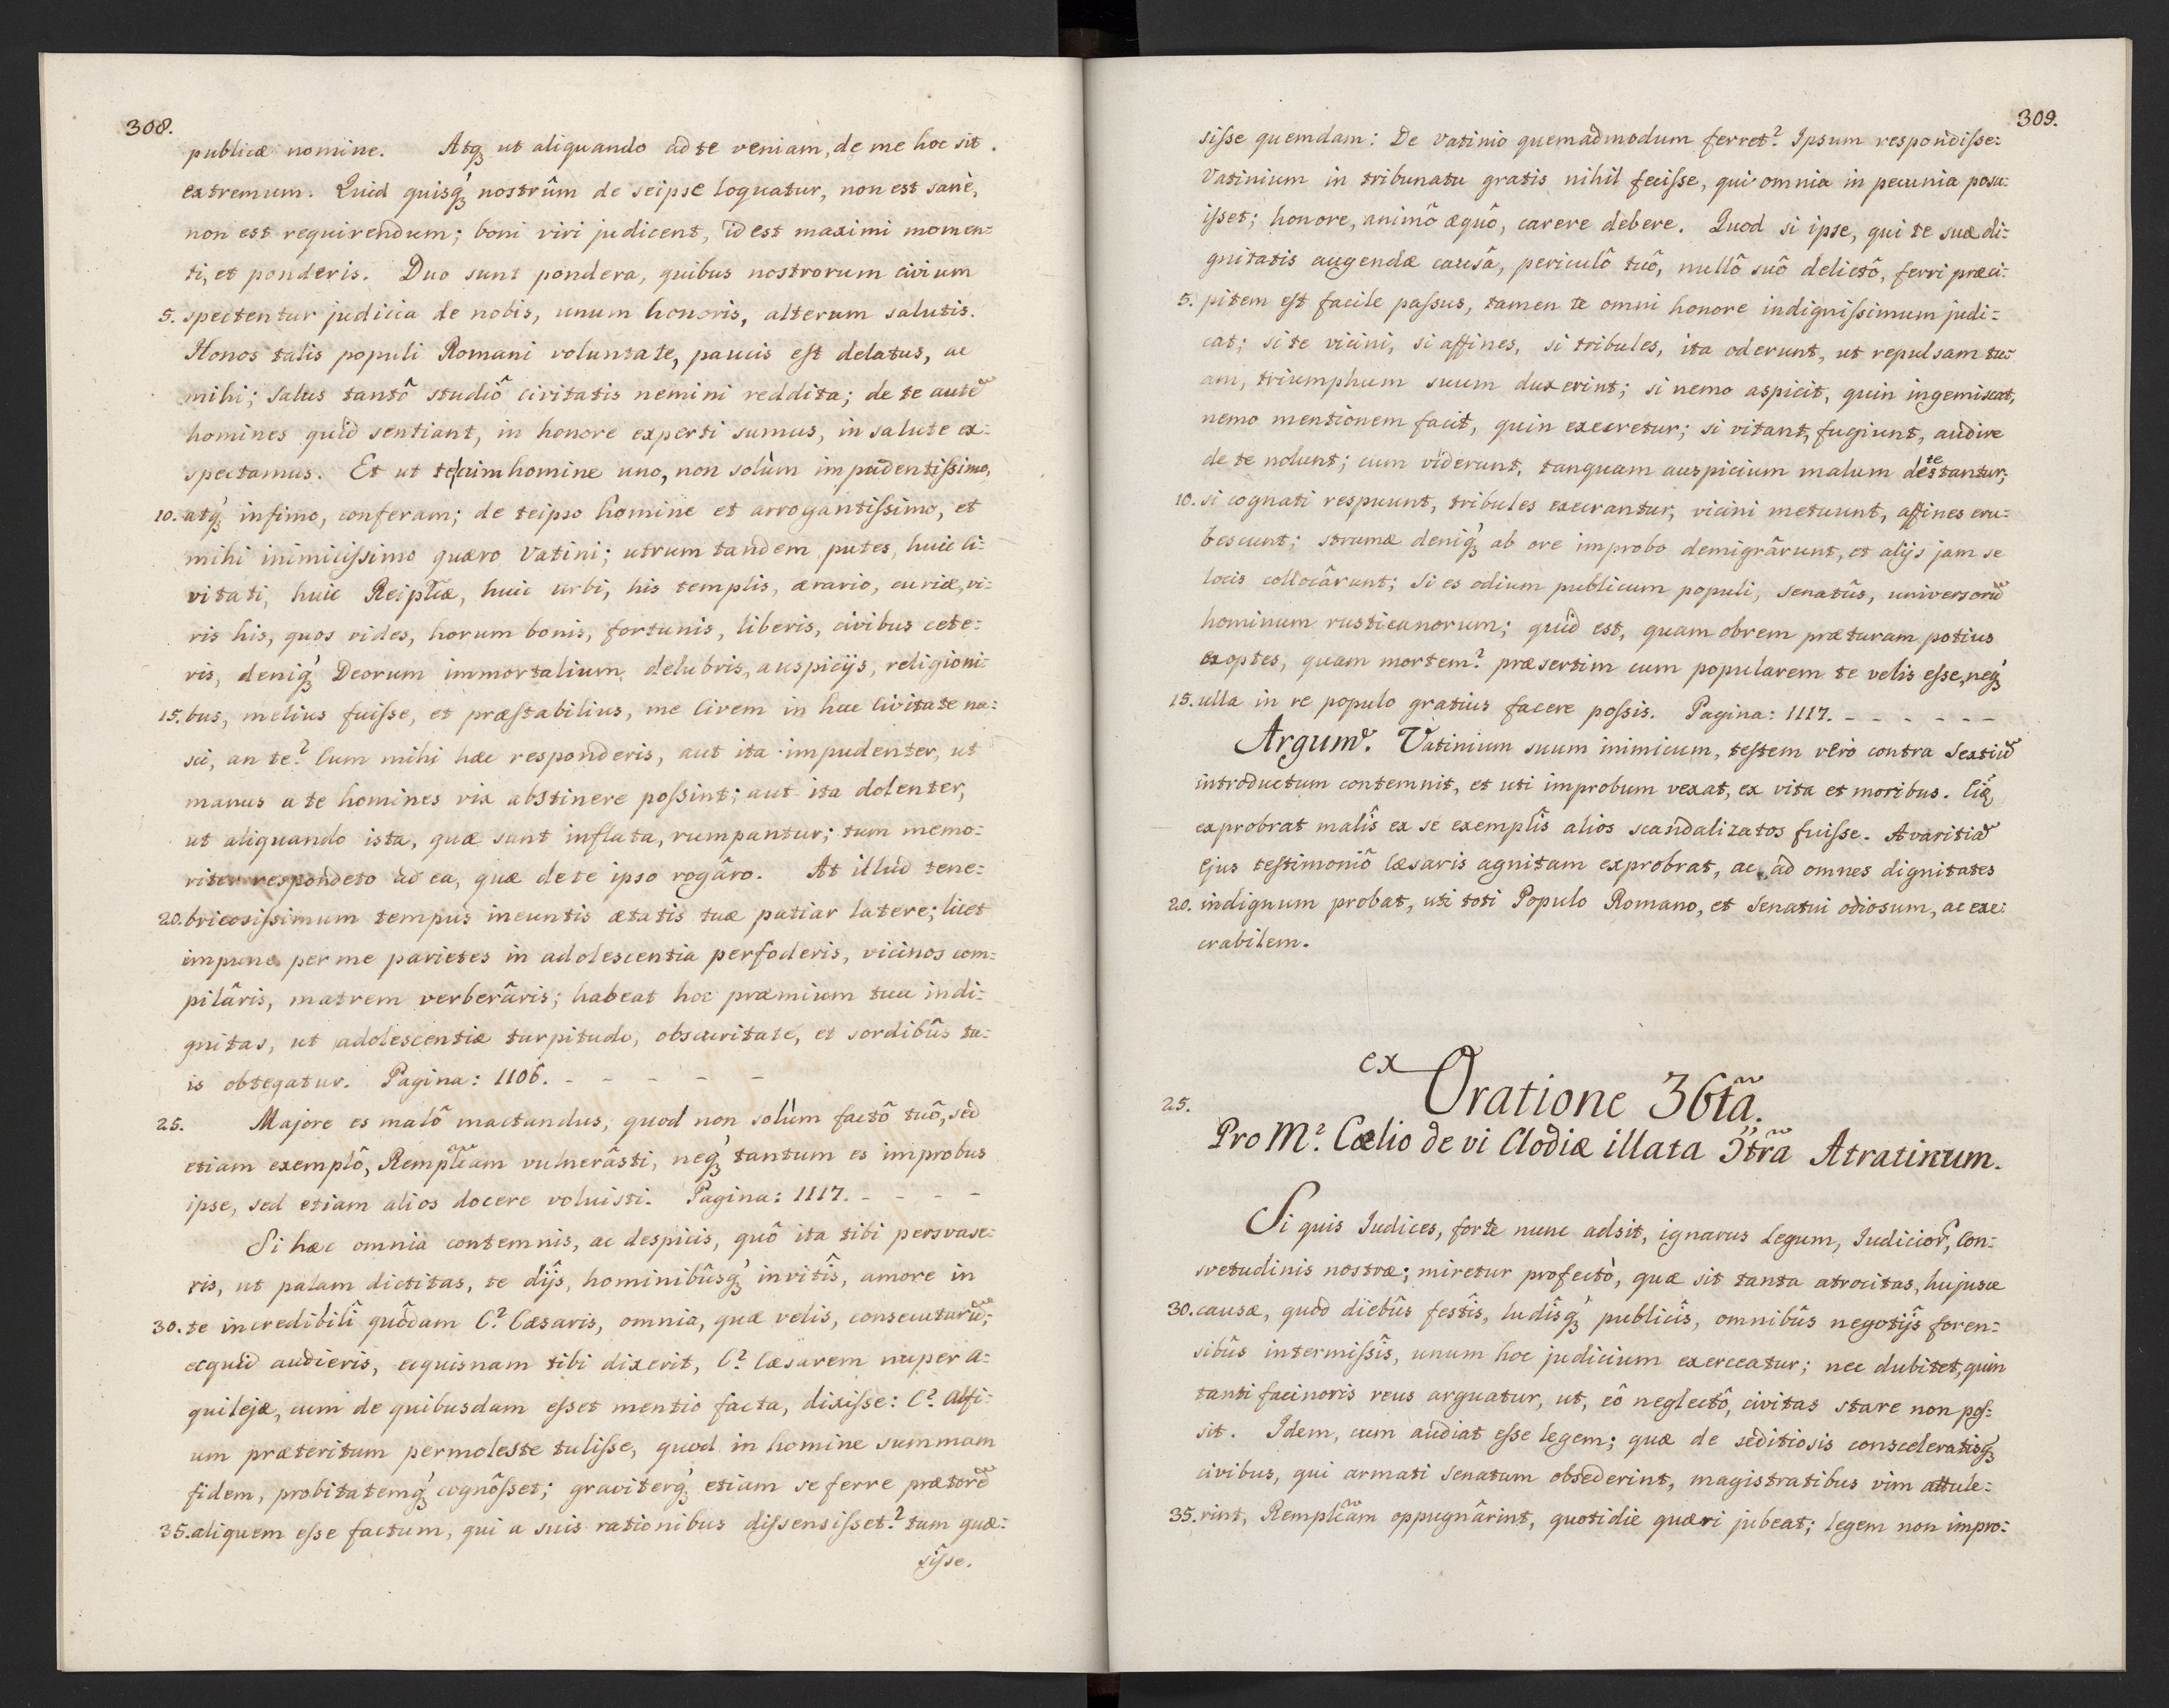 308.
publicæ nomine. Atq́ ut aliquando ad te veniam, de me hoc sit.
extremum. Quid quisq́ nostrûm de seipse loquatur, non est sanè,
non est requirendum; boni viri judicent, id est maximi momen=
ti, et ponderis. Duo sunt pondera, quibus nostrorum civium
5. spectentur judicia de nobis, unum honoris, alterum salutis.
Honos talis populi Romani voluntate, paucis est delatus, ac
mihi; salus tantô studiô civitatis nemini reddita; de te autẽ
homines quid sentiant, in honore experti sumus, in salute ex=
spectamus. Et ut te cum homine uno, non solùm impudentissimo,
10. atq́ infimo, conferam; de teipso homine et arrogantissimo, et
mihi inimicissimo quæro Vatini; utrum tandem putes, huic Ci=
vitati, huic Reiplcæ, huic urbi, his templis, ærario, curiæ, vi=
ris his, quos vides, horum bonis, fortunis, liberis, civibus cete=
ris, deniq́ Deorum immortalium delubris, auspicijs, religioni=
15. bus, melius fuisse, et præstabilius, me Civem in hac Civitate na=
sci, an te? Cum mihi hæc responderis, aut ita impudenter, ut
manus a te homines vix abstinere possint; aut ita dolenter,
ut aliquando ista, quæ sunt inflata, rumpantur; tum memo=
riter respondeto ad ea, quæ de te ipso rogâro. At illud tene=
20. bricosissimum tempus ineuntis ætatis tuæ patiar latere; licet
impune per me parietes in adolescentia perfoderis, vicinos com=
pilâris, matrem verberâris; habeat hoc præmium tua indi=
gnitas, ut adolescentiæ turpitudo, obscuritate, et sordibûs tu=
is obtegatur. Pagina: 1106. - - - - -
25. Majore es malô mactandus, quod non solùm factô tuô, sed
etiam exemplô, Remplcam vulnerâsti, neq́ tantum es improbus
ipse, sed etiam alios docere voluisti. Pagina: 1117. - - - -
Si hæc omnia contemnis, ac despicis, quô ita tibi persvase=
ris, ut palam dictitas, te dijs, hominibûsq́ invitîs, amore in
30. te incredibilî quôdam C? Cæsaris, omnia, quæ velis, consecuturũ;
ecquid audieris, ecquisnam tibi dixerit, C? Cæsarem nuper A=
quilejæ, cum de quibusdam esset mentio facta, dixisse: C? Alfi=
um præteritum permoleste tulisse, quod in homine summam
fidem, probitatemq́ cognôsset; graviterq́ etiam se ferre prætorẽ
35. aliquem esse factum, qui a suis rationibus dissensisset? tum quæ=
sisse.
309.
sisse quemdam: De Vatinio quemadmodum ferret? Ipsum respondisse:
Vatinium in tribunatu gratis nihil fecisse, qui omnia in pecunia posu=
isset; honore, animô æquô, carere debere. Quod si ipse, qui te suæ di=
gnitatis augendæ causâ, periculô tuô, nullô suô delictô, ferri præci=
5. pitem est facile passus, tamen te omni honore indignissimum judi=
cat; si te vicini, si affines, si tribules, ita oderunt, ut repulsam tu=
am, triumphum suum duxerint; si nemo aspicit, quin ingemiscat,
nemo mentionem facit, quin execretur; si vitant, fugiunt, audire
de te nolunt; cum viderunt, tanquam auspicium malum detestantur;
10. si cognati respuunt, tribules execrantur, vicini metuunt, affines eru=
bescunt; strumæ deniq́ ab ore improbo demigrârunt, et alijs jam se
locis collocârunt; Si es odium publicum populi, senatûs, universorũ
hominum rusticanorum; quid est, quam obrem præturam potius
exoptes, quam mortem? præsertim cum popularem te velis esse, neq́
15. ulla in re populo gratius facere possis. Pagina: 1117. - - - - - -
Argumt. Vatinium suum inimicum, testem vero contra Sextiũ
introductum contemnit, et uti improbum vexat, ex vita et moribus. Ciq
exprobrat malîs ex se exemplîs alios scandalizatos fuisse. Avaritiã
Ejus testimoniô Cæsaris agnitam exprobrat, ac ad omnes dignitates
20. indignum probat, uti toti Populo Romano, et Senatui odiosum, ac exe=
crabilem.
ex
25. Oratione 36tã.
Pro M? Cælio de vi Clodiæ illata Ɔtrã Atratinum.
Si quis Iudices, forte nunc adsit, ignarus Legum, Iudicior, Con=
svetudinis nostræ; miretur profectò, quæ sit tanta atrocitas, hujusce
30. causæ, quòd diebûs festîs, ludîsq́ publicîs, omnibûs negotijs foren=
sibûs intermissîs, unum hoc judicium exerceatur; nec dubitet, quin
tanti facinoris reus arguatur, ut, eô neglectô, civitas stare non pos=
sit. Idem, cum audiat esse legem; quæ de seditiosis consceleratisq́
civibus, qui armati Senatum obsederint, magistratibus vim attule=
35. rint, Remplcam oppugnârint, quotidie quæri jubeat; legem non impro=